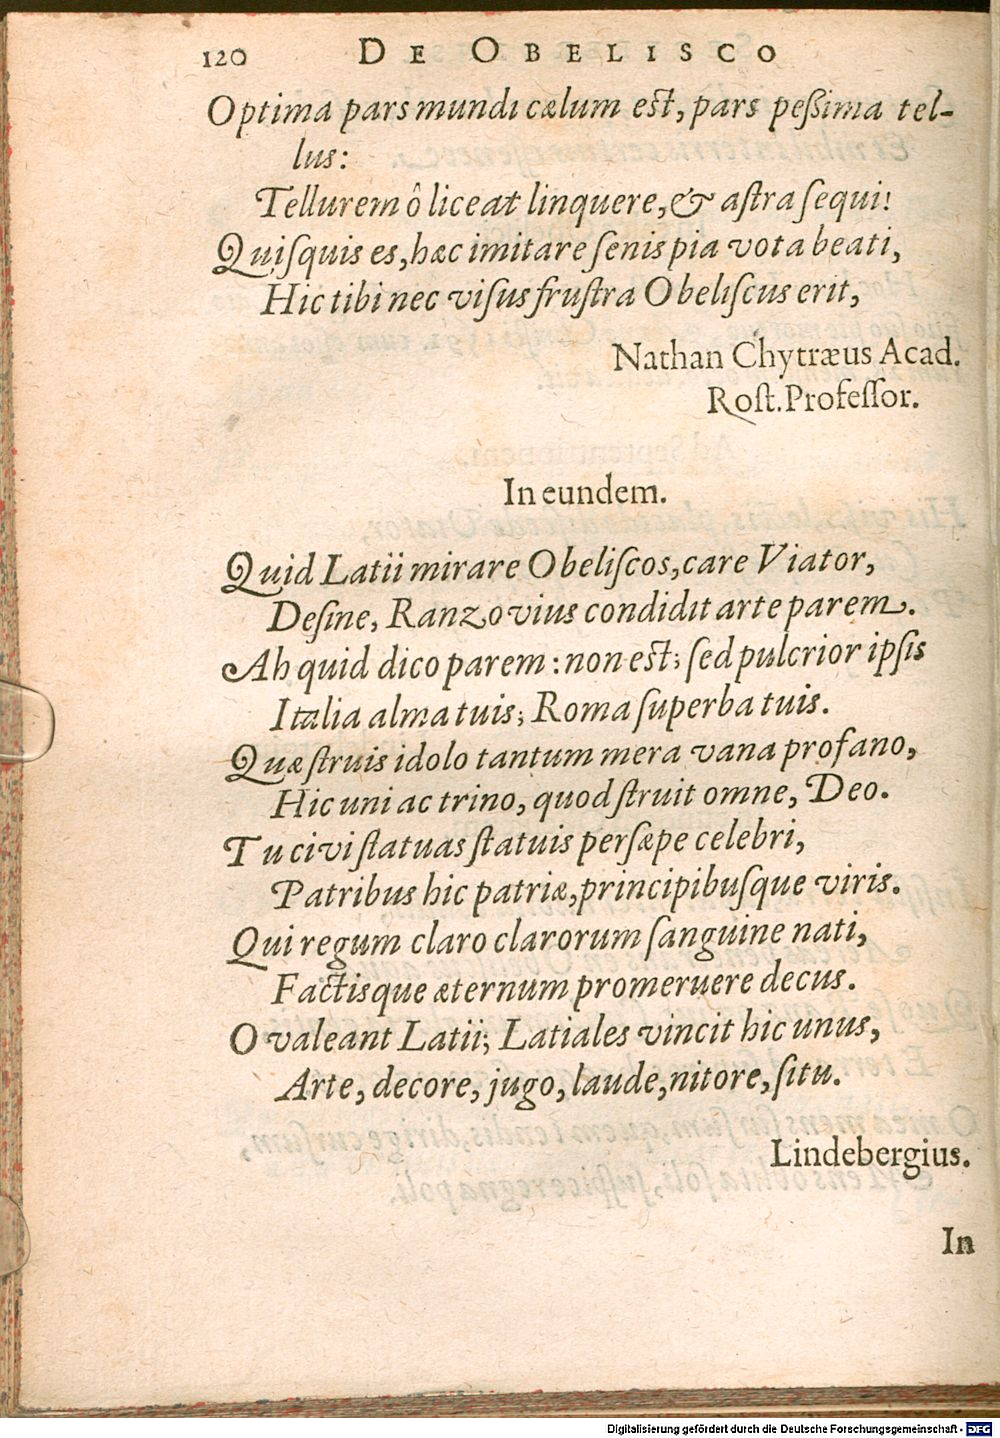 120 DE OBELISCO
Optima pars mundi cælum est, pars peſsima tel-
lus:
Tellurem ô liceat linquere, & aſtra ſequi!
Quiſquis es, hæc imitare ſenis pia vota beati,
Hic tibi nec viſus fruſtra Obeliſcus erit,
Nathan Chytræus Acad.
Roſt. Profeſſor.
In eundem.
Quid Latii mirare Obeliſcos, care Viator,
Deſine, Ranzovius condidit arte parem.
Ah quid dico parem: non est; ſed pulcrior ipſis
Italia alma tuis; Roma ſuperba tuis.
Quæ ſtruis idolo tantum mera vana profano,
Hic uni ac trino, quod ſtruit omne, Deo.
Tu civi ſtatuas ſtatuis perſæpe celebri,
Patribus hic patriæ, principibuſque viris.
Qui regum claro clarorum ſanguine nati,
Factisque æternum promeruere decus.
O valeant Latii; Latiales vincit hic unus,
Arte, decore, jugo, laude, nitore, ſitu.
Lindebergius.
In
Digitalisierung gefördert durch die Deutsche Forschungsgemeinschaft - DFG